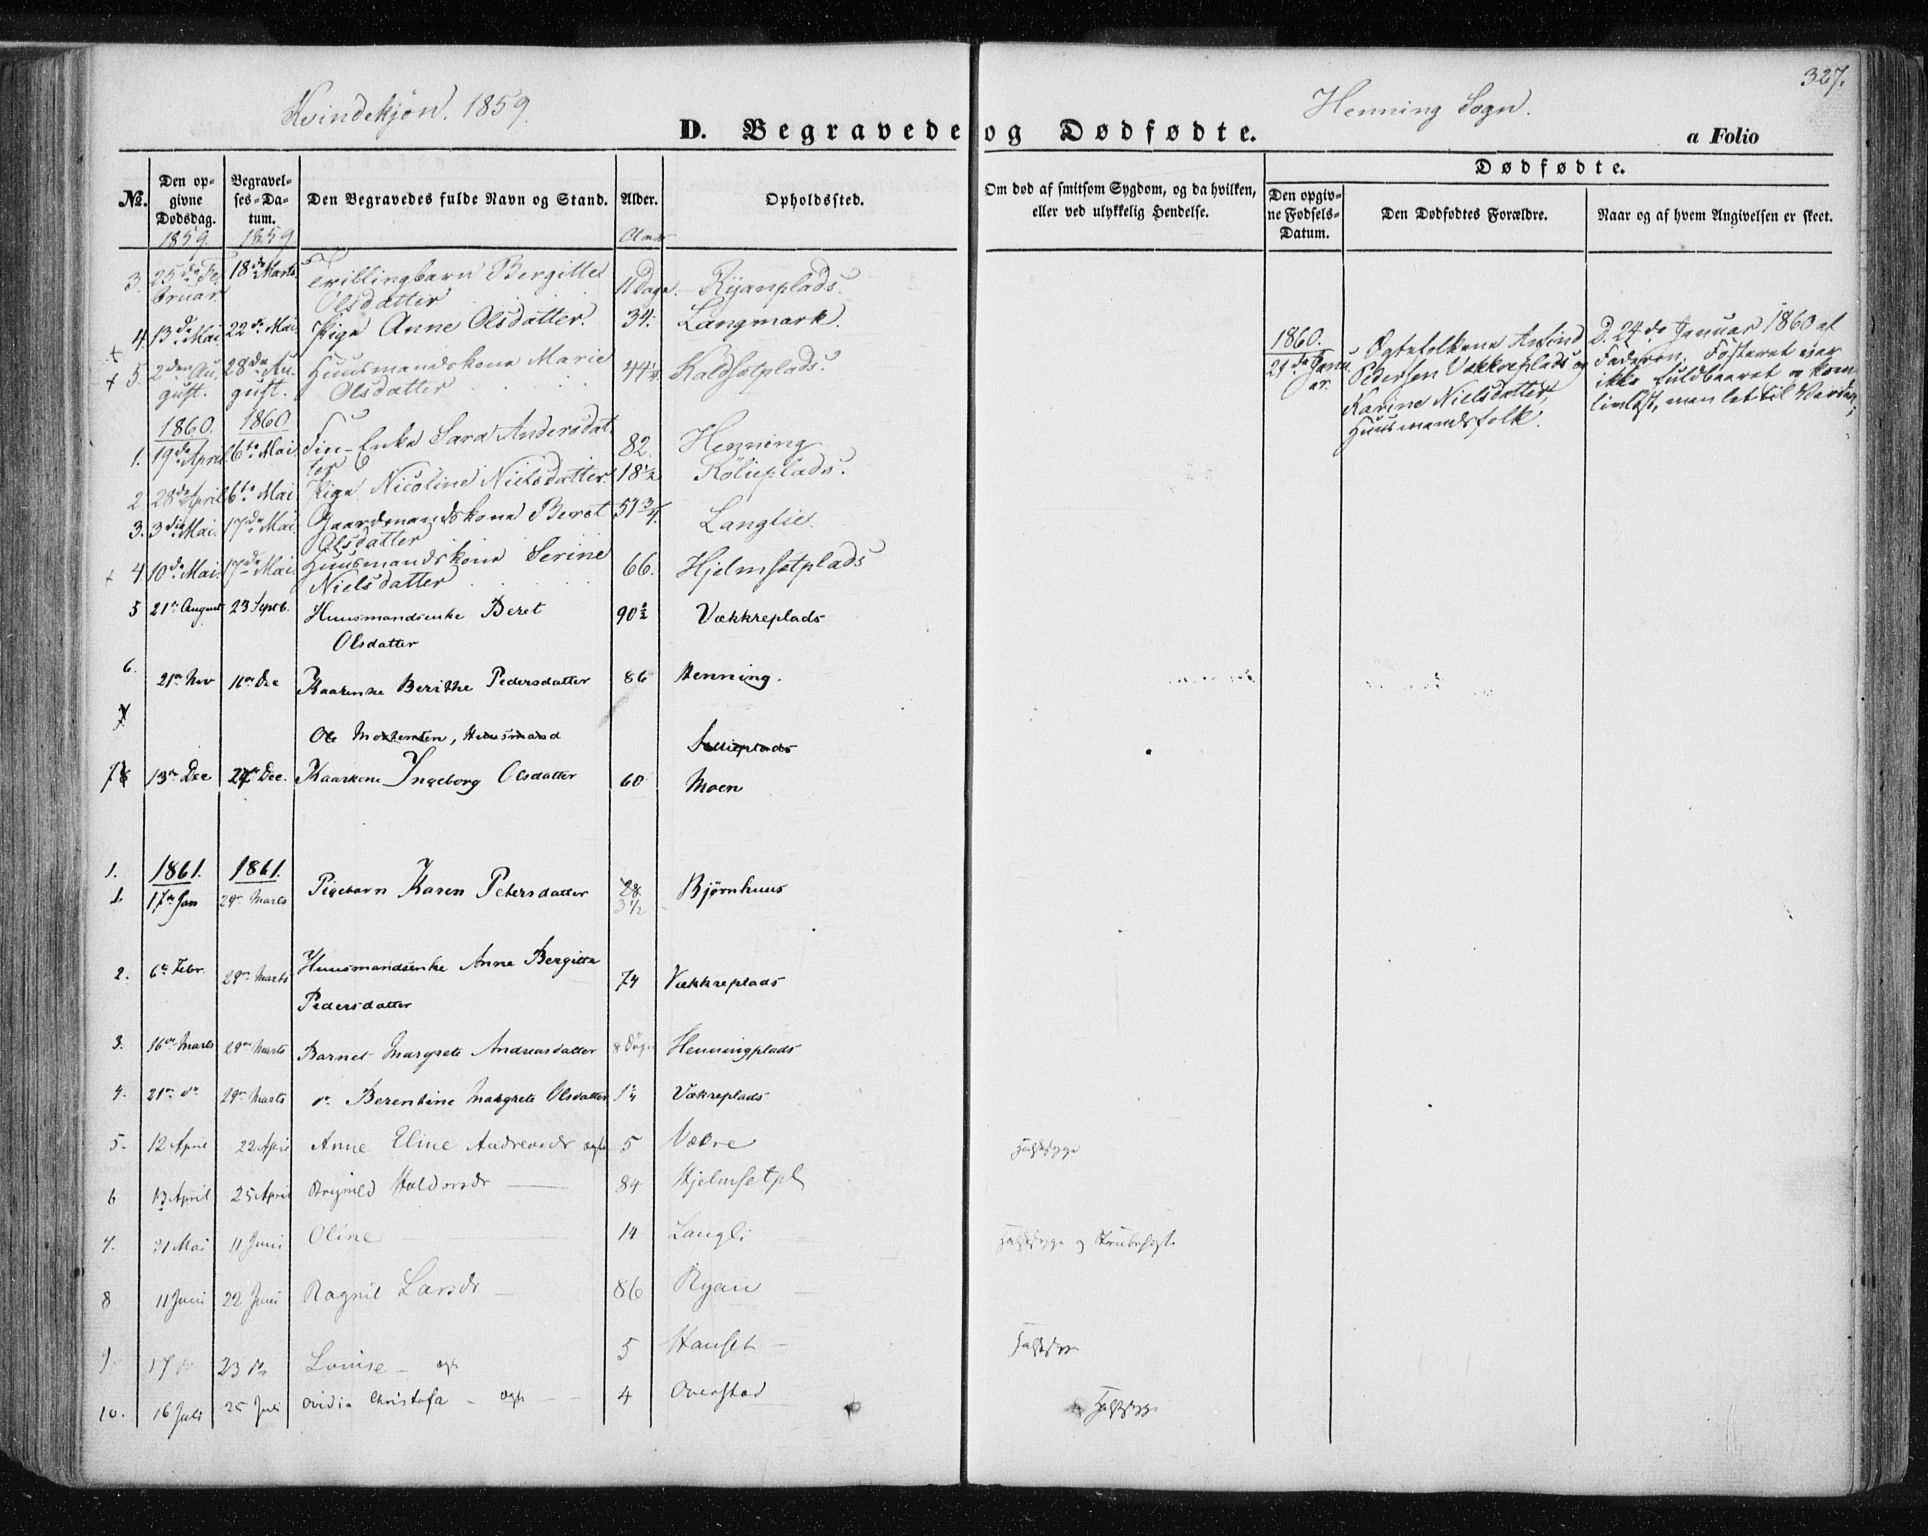 327.
Kvindekjøn. 1859.
Henning Sogn.
D. Begravede og Dødfødte.
a Folio
No.
Den opgivne Dødsdag.
Begravelses-Datum.
Den Begravedes fulde Navn og Stand.
Alder.
Opholdssted.
Om død af smitsom Sygdom, og da hvilken, eller ved ulykkelig Hendelse.
Dødfødte.
Den opgivne Fødsels-Datum.
Den Dødfødtes Forældre.
Naar og af hvem Angivelsen er skeet.
1859. 1859
3. 25de Februar 18de Marts Trillingbarn Bergitte Olsdatter 11 Dage. Ryanplads.
4. 13de Mai 22de Mai Pige Anne Olsdatter. 34. Langmark.
+ 5. 2den August. 28de August. Huusmandskone Marie Olsdatter 44 1/2 Kaldsetplads.
1860. 1860
1. 19de April 6te Mai Enke Sara Andersdatter 82. Henning
2 28de April 6te Mai Pige Nicoline Nielsdatter. 18 1/2 Kølieplads.
3. 3die Mai. 17de Mai Gaardmandskone Beret Olsdatter 51 3/4. Langlie.
+ 4 10de Mai. 17de Mai. Huusmandskone Serine Nielsdatter 66. Hjelmsetplads
5 21de August 23 Septb. Huusmandsenke Beret Olsdatter 90 1/2 Vækkreplads
6. 21de Nov 11te Dec Kaarenke Berithe Pedersdatter 86 Henning.
7 Ole Mortensen, Huusmand
7 13de Dec Dec. Kaarkone Ingeborg Olsdatter 60 Moen
1861. 1861.
1. 17de Jan 29de Marts Pigebarn Karen Petersdatter 28 3 1/2 Bjørnhuus
2. 6te Febr. 29de Marts Huusmandsenke Anne Bergitta Pedersdatter 74 Vækkreplads
3. 16de Marts 29de Marts Barnet Margrete Andreasdatter 8 Døgn Henningplads
4. 21de do 29de Marts do Berentine Margrete Olsdatter Vækreplads
5. 12 April 22 April Anne Eline Andreasdr ægte 5 Vækre Halssyge
6 13 April 25 April Haldorsdr 84 Hjelmsetpl
7. 31 Mai 11 Juni Oline 14 Langli Halssyge og Strubehoste
8 11 Juni 22 Juni Ragnil Larsdr 86 Ryan
9. 17 do 23 do Louise - ægte 5 Hanset Halssyge
10. 16 Juli 25 Juli Ovidia Christofa - ægte 4 Overstad Halssyge
1860.
21de Januar. Ægtefolkene Arfind Petersen Vækkreplads og Karine Nielsdatter, Huusmandsfolk.
D. 24de Januar 1860 af Faderen. Fosteret var ikke fuldbaaret og kom livløst, men let til Verden;